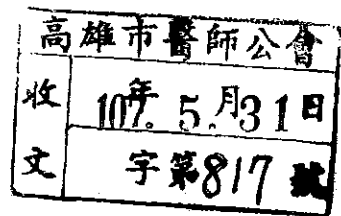 高雄市醫師公會
收文
107年5月31日
字第817號